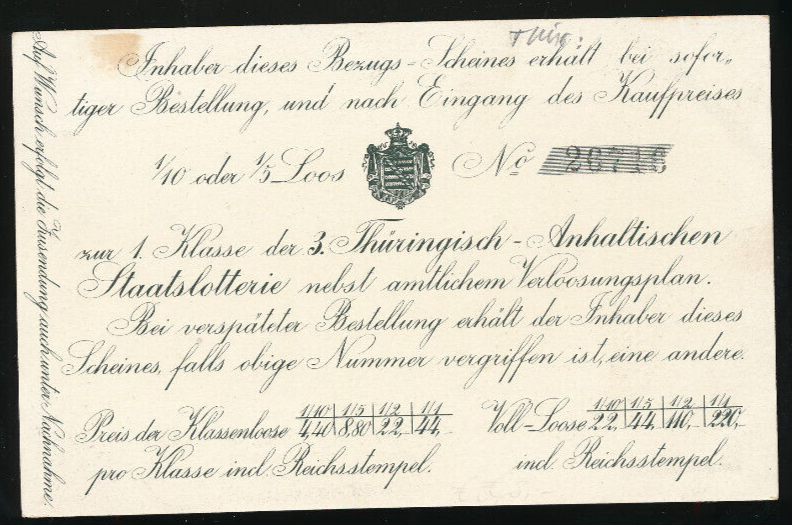 Thür:
Inhaber dieses Bezugs-Scheines erhält bei sofor„
tiger Bestellung, und nach Eingang des Kaufpreises
1/10 oder 1/5 Loos No 26716
zur 1. Klasse der 3. Thüringisch-Anhaltischen
Staatslotterie nebst amtlichem Verloosungsplan.
Bei verspäteter Bestellung erhält der Inhaber dieses
Scheines, falls obige Nummer vergriffen ist, eine andere.
Preis der Klassenloose 1/10 1/5 1/2 1/1
4,40 8,80 22,- 44,-
pro Klasse incl. Reichsstempel.
Voll-Loose 1/10 1/5 1/2 1/1
22,- 44,- 110,- 220,-
incl. Reichsstempel.
Auf Wunsch erfolgt die Zusendung auch unter Nachnahme.